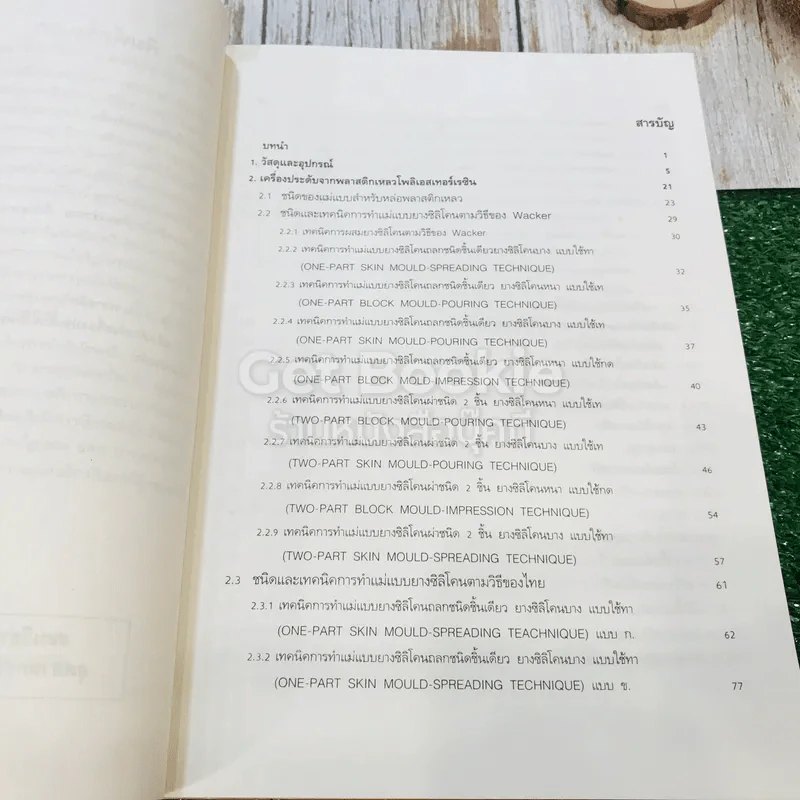 สารบัญ
บทนำ 1
1. วัสดุและอุปกรณ์ 5
2. เครื่องประดับจากพลาสติกเหลวโพลิเอสเทอร์เรซิน 21
2.1 ชนิดของแม่แบบสำหรับหล่อพลาสติกเหลว 23
2.2 ชนิดและเทคนิคการทำแม่แบบยางซิลิโคนตามวิธีของ Wacker 29
2.2.1 เทคนิคการผสมยางซิลิโคนตามวิธีของ Wacker 30
2.2.2 เทคนิคการทำแม่แบบยางซิลิโคนถลกชนิดชิ้นเดียวยางซิลิโคนบาง แบบใช้ทา
(ONE-PART SKIN MOULD-SPREADING TECHNIQUE) 32
2.2.3 เทคนิคการทำแม่แบบยางซิลิโคนถลกชนิดชิ้นเดียว ยางซิลิโคนหนา แบบใช้เท
(ONE-PART BLOCK MOULD-POURING TECHNIQUE) 35
2.2.4 เทคนิคการทำแม่แบบยางซิลิโคนถลกชนิดชิ้นเดียว ยางซิลิโคนบาง แบบใช้เท
(ONE-PART SKIN MOULD-POURING TECHNIQUE) 37
2.2.5 เทคนิคการทำแม่แบบยางซิลิโคนถลกชนิดชิ้นเดียว ยางซิลิโคนหนา แบบใช้กด
(ONE-PART BLOCK MOLD-IMPRESSION TECHNIQUE) 40
2.2.6 เทคนิคการทำแม่แบบยางซิลิโคนผ่าชนิด 2 ชิ้น ยางซิลิโคนหนา แบบใช้เท
(TWO-PART BLOCK MOULD-POURING TECHNIQUE) 43
2.2.7 เทคนิคการทำแม่แบบยางซิลิโคนผ่าชนิด 2 ชิ้น ยางซิลิโคนบาง แบบใช้เท
(TWO-PART SKIN MOULD-POURING TECHNIQUE) 46
2.2.8 เทคนิคการทำแม่แบบยางซิลิโคนผ่าชนิด 2 ชิ้น ยางซิลิโคนหนา แบบใช้กด
(TWO-PART BLOCK MOULD-IMPRESSION TECHNIQUE) 54
2.2.9 เทคนิคการทำแม่แบบยางซิลิโคนผ่าชนิด 2 ชิ้น ยางซิลิโคนบาง แบบใช้ทา
(TWO-PART SKIN MOULD-SPREADING TECHNIQUE) 57
2.3 ชนิดและเทคนิคการทำแม่แบบยางซิลิโคนตามวิธีของไทย 61
2.3.1 เทคนิคการทำแม่แบบยางซิลิโคนถลกชนิดชิ้นเดียว ยางซิลิโคนบาง แบบใช้ทา
(ONE-PART SKIN MOULD-SPREADING TEACHNIQUE) แบบ ก. 62
2.3.2 เทคนิคการทำแม่แบบยางซิลิโคนถลกชนิดชิ้นเดียว ยางซิลิโคนบาง แบบใช้ทา
(ONE-PART SKIN MOULD-SPREADING TECHNIQUE) แบบ ข. 77
Get Bookie
ร้านหนังสือบุ๊คกี้